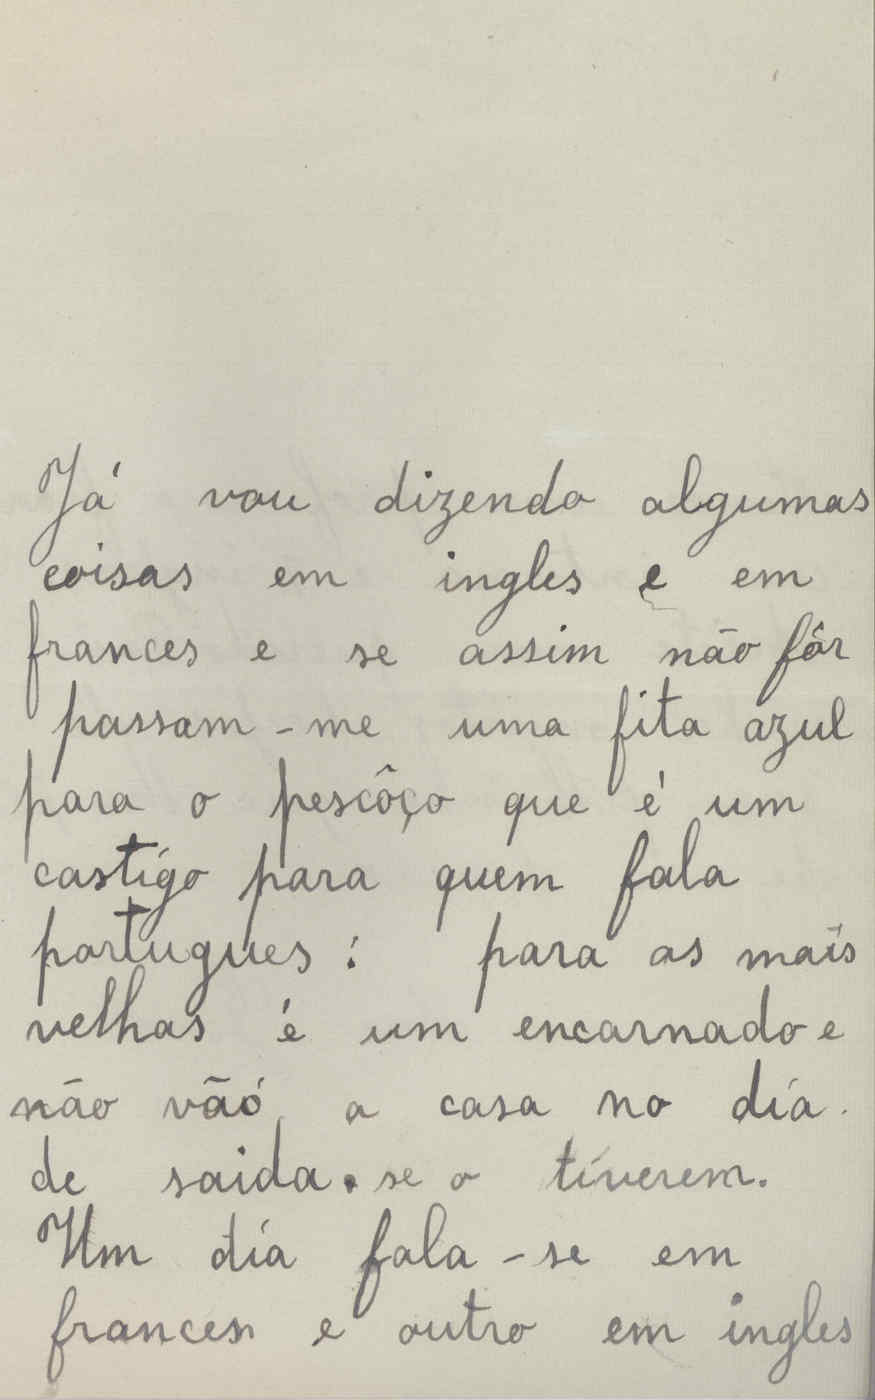 Já vou dizendo algumas
coisas em ingles e em
frances e se assim não fôr
passam-me uma fita azul
para o pescôço que é um
castigo para quem fala
portugues: para as mais
velhas é um encarnado e
não vão a casa no dia
de saida. se o tiverem.
Um dia fala-se em
frances e outro em ingles